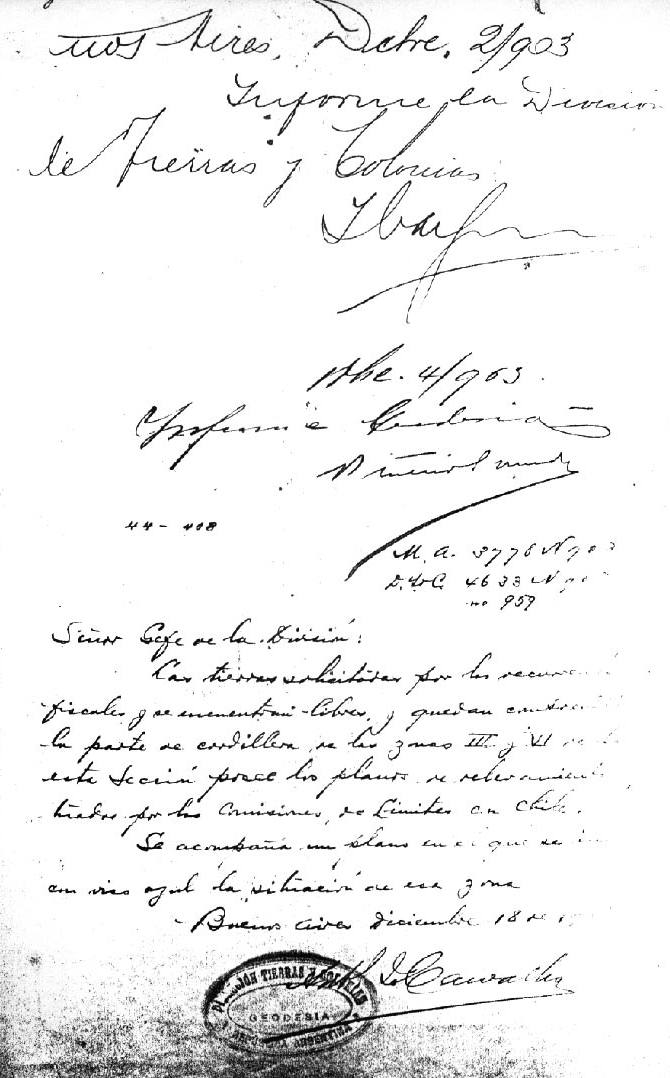 nos Aires, Dcbre. 2/903
Informe la División
de Tierras y Colonias
Dbre. 4/903.
Informe Geodesia
44 - 408
M. A. 3776 N 90
D. T. C. 4633 N 90
959
Señor Gefe de la División:
Las tierras solicitadas por los
fiscales y se encuentran libres, y quedan
la parte de cordillera, de las zonas III y VI
esta Sección posee los planos de
por las Comisiones de Límites con Chile.
Se acompaña un plano en el que se
con viso azul la situación de esa zona
Buenos Aires Diciembre 18 de 1
DIVISIÓN TIERRAS Y COLONIAS
GEODESIA
REPÚBLICA ARGENTINA